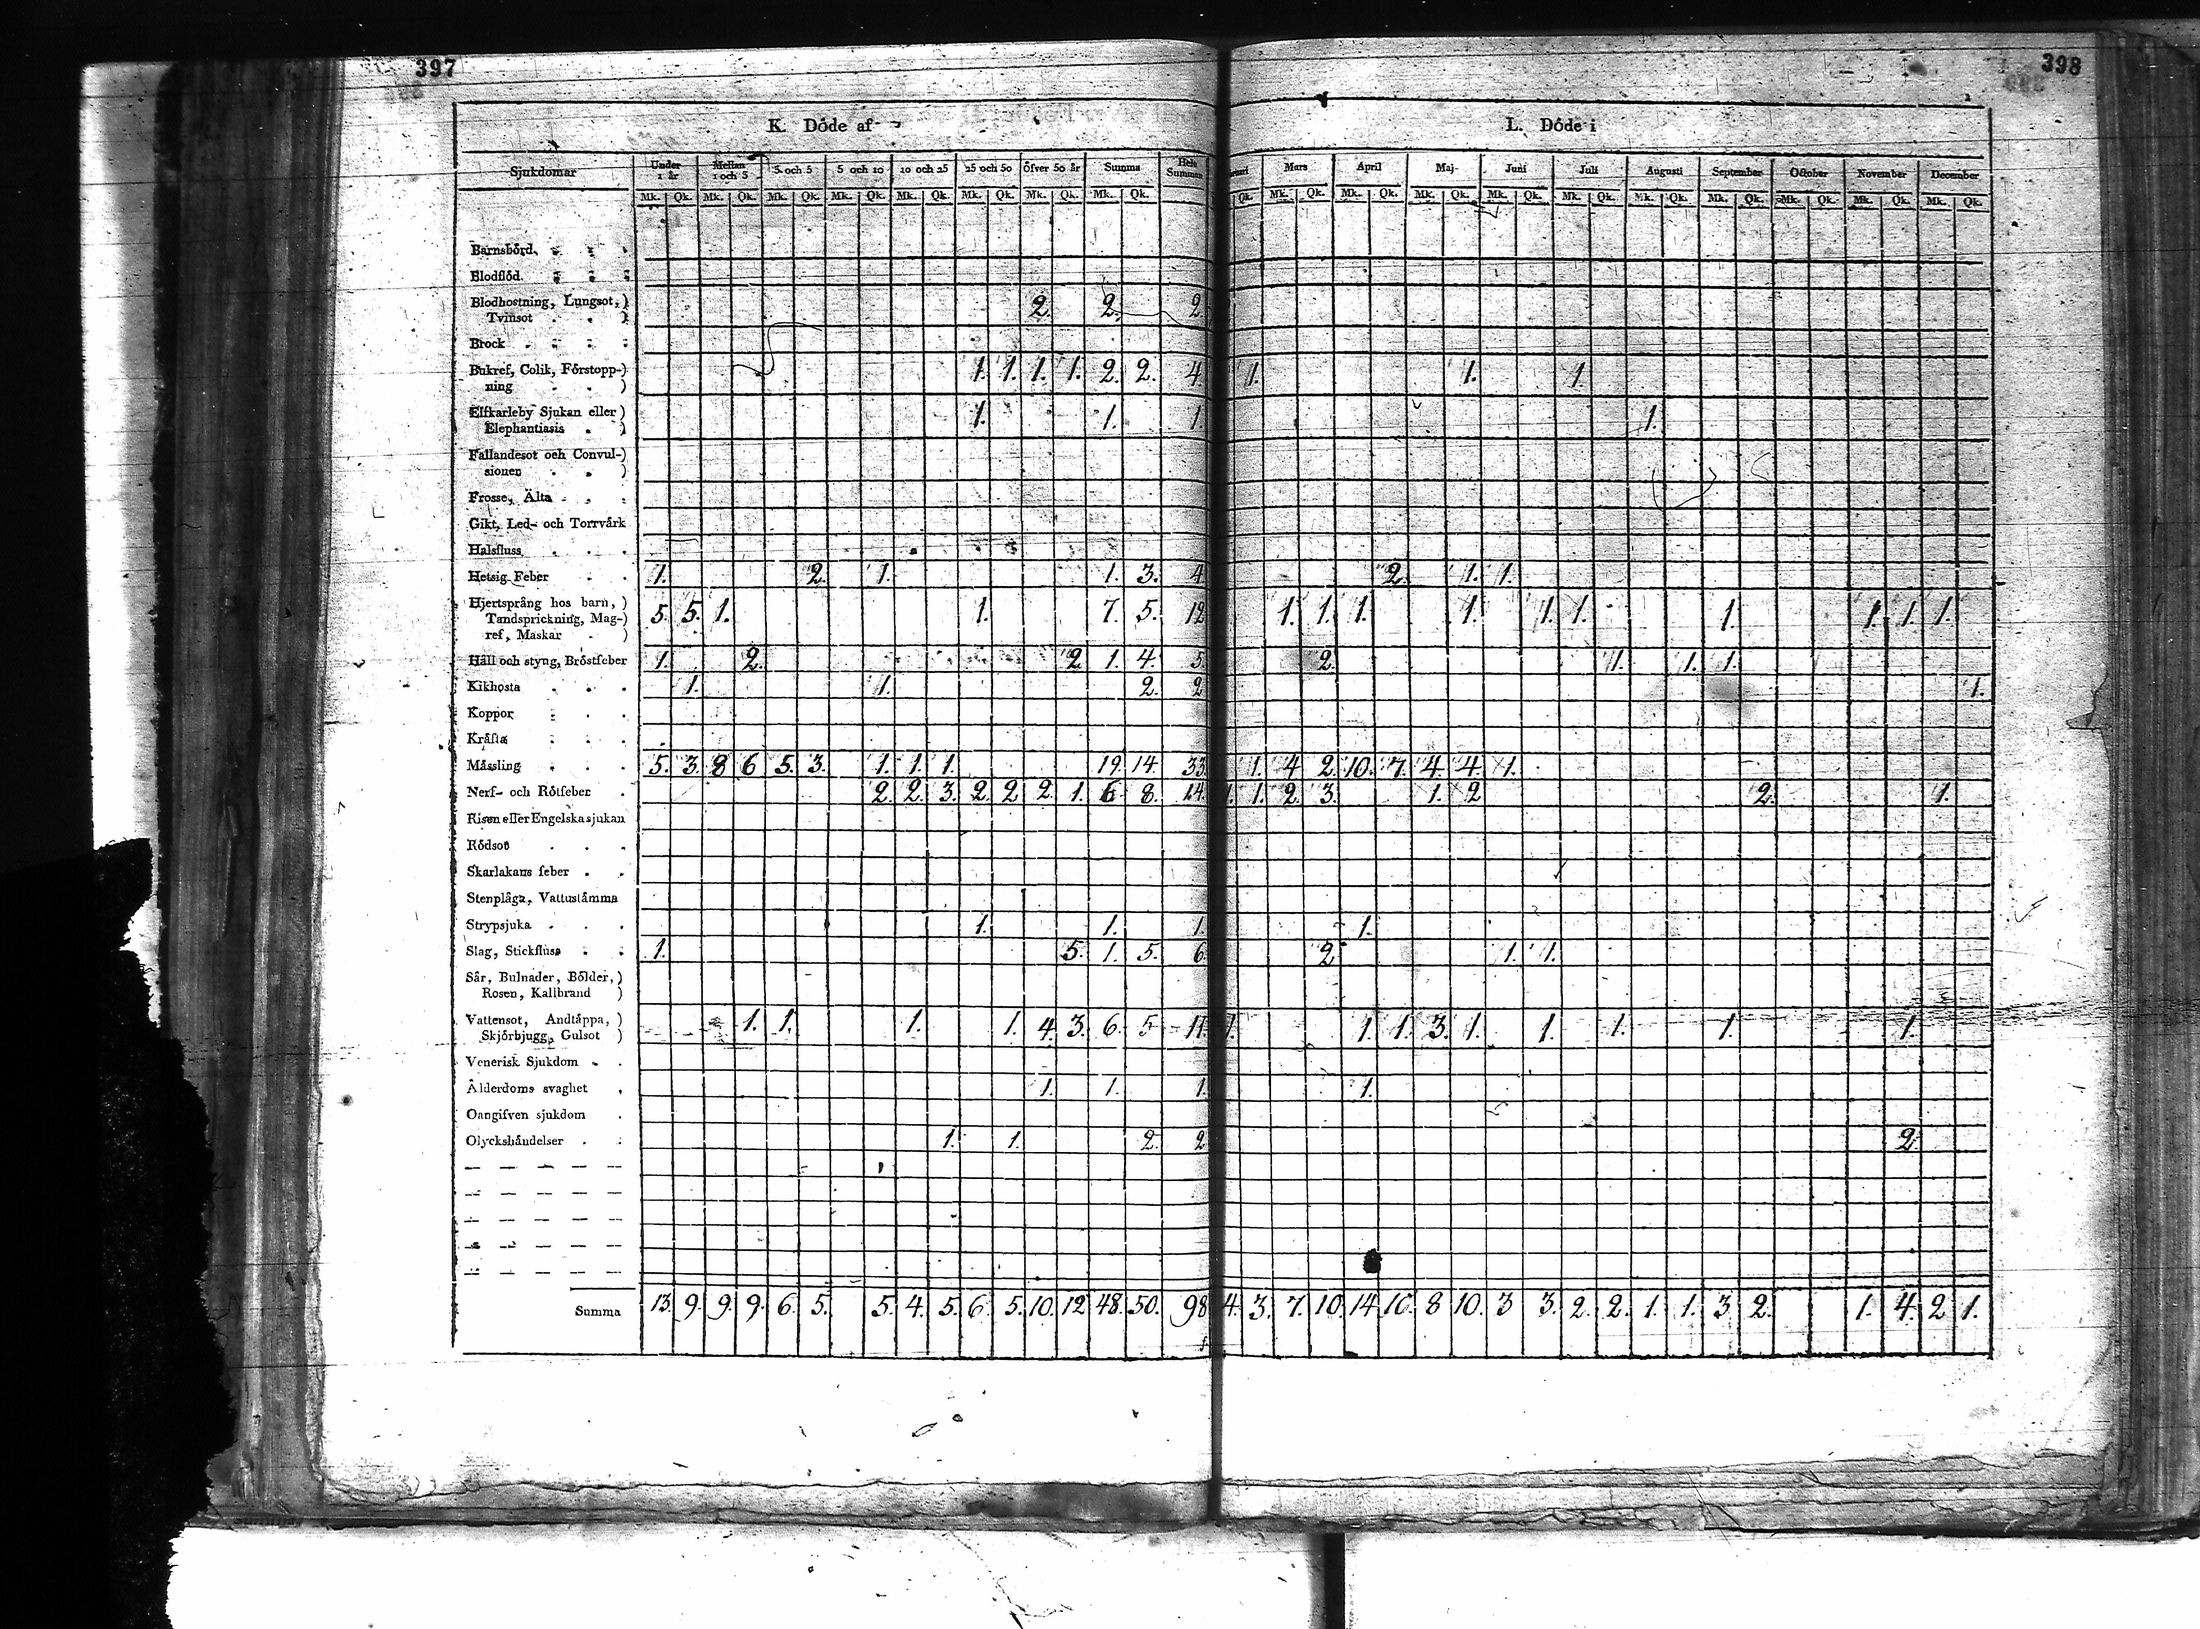 397
398
K. Döde af
L. Döde i
Sjukdomar Under 1 år Mellan 1 och 3 3 och 5 5 och 10 10 och 25 25 och 50 Öfver 50 år Summa Hela Summan Mars April Maj Juni Juli Augusti September October November December
Mk. Qk. Mk. Qk. Mk. Qk. Mk. Qk. Mk. Qk. Mk. Qk. Mk. Qk. Mk. Qk. Qk. Mk. Qk. Mk. Qk. Mk. Qk. Mk. Qk. Mk. Qk. Mk. Qk. Mk. Qk. Mk. Qk. Mk. Qk. Mk. Qk.
Barnsbörd
Blodflöd
Blodhostning, Lungsot,
Tvinsot 2. 2. 2
Brock
Bukref, Colik, Förstopp-
ning 1. 1. 1. 1. 2. 2. 4. 1. 1. 1.
Elfkarleby Sjukan eller
Elephantiasis 1. 1. 1. 1.
Fallandesot och Convul-
sioner
Frosse, Älta
Gikt, Led- och Torrvärk
Halsfluss
Hetsig Feber 1. 2. 1. 1. 3. 4. 2. 1. 1.
Hjertsprång hos barn,
Tandsprickning, Mag-
ref, Maskar 5. 5. 1. 1. 7. 5. 12 1. 1. 1. 1. 1. 1. 1. 1. 1. 1.
Håll och styng, Bröstfeber 1. 2. 2 1. 4. 5. 2. 1. 1. 1.
Kikhosta 1. 1. 2. 2 1.
Koppor
Kräfta
Mässling 5. 3. 8 6 5. 3. 1. 1. 1. 19. 14. 33. 1. 4 2. 10. 7. 4. 4. 1.
Nerf- och Rötfeber 2. 2. 3. 2. 2 2. 1. 6. 8. 14. 1. 1. 2. 3. 1. 2 2. 1.
Risen eller Engelska sjukan
Rödsot
Skarlakans feber
Stenplåga, Vattustämma
Strypsjuka 1. 1. 1. 1.
Slag, Stickfluss 1. 5. 1. 5. 6. 2. 1. 1.
Sår, Bulnader, Bölder,
Rosen, Kallbrand
Vattensot, Andtäppa,
Skjörbjugg, Gulsot 1. 1. 1. 1. 4. 3. 6. 5. 11. 1. 1. 1. 3. 1. 1. 1. 1. 1.
Venerisk Sjukdom
Ålderdoms svaghet 1. 1. 1. 1.
Oangifven sjukdom
Olyckshändelser 1. 1. 2. 2 2.
Summa 13. 9. 9. 9. 6. 5. 5. 4. 5. 6. 5. 10. 12 48. 50. 98 4. 3. 7. 10. 14. 10. 8 10. 3 3. 2. 2. 1. 1. 3. 2. 1. 4. 2 1.